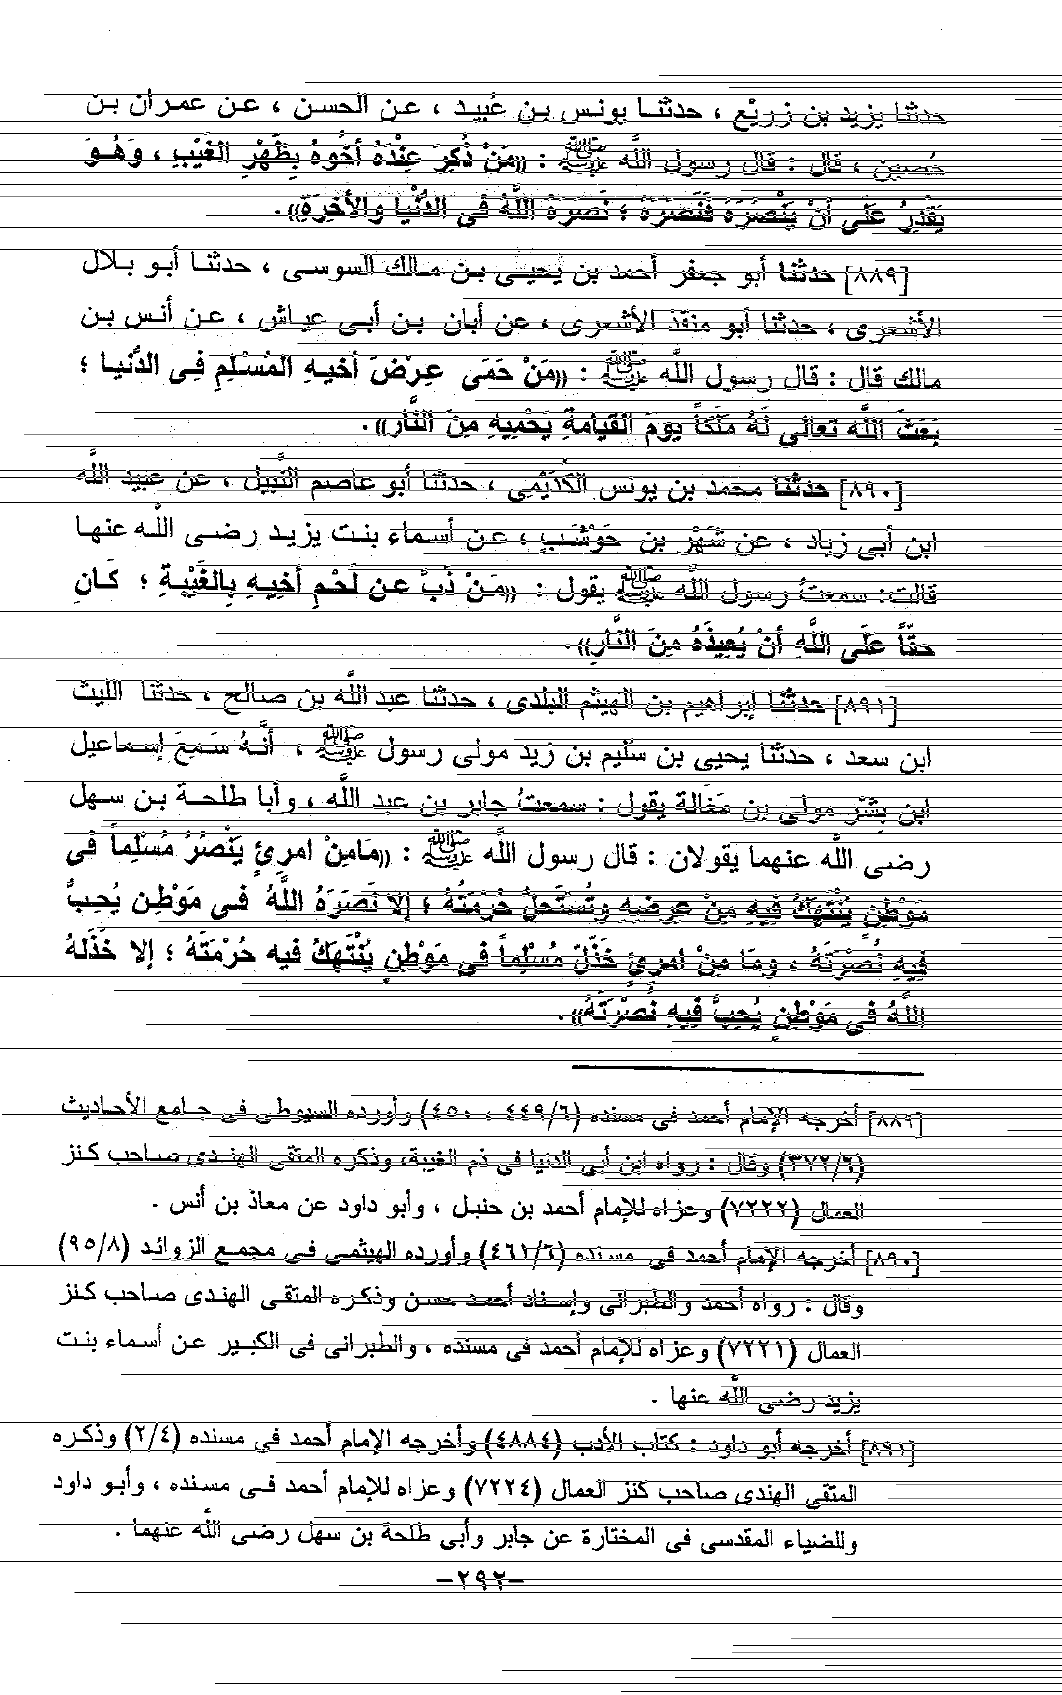 حدثنا يزيد بن زريْع ، حدثنا يونس بن عُبيد ، عن الحسن ، عن عمران بن
حُصين ، قال : قال رسول اللَّه ﷺ : «مَنْ ذُكِرَ عِنْدَهُ أخُوهُ بِظَهْرِ الغَيْبِ ، وَهُوَ
يَقْدِرُ عَلَى أنْ يَنْصُرَهُ فَنَصَرَهُ ؛ نَصَرَهُ اللَّهُ فى الدُّنْيا والأخرَةِ» .
[٨٨٩] حدثنا أبو جعفر أحمد بن يُحيى بن مالك السوسى ، حدثنا أبو بلال
الأشعرى ، حدثنا أبو منقذ الأشعرى ، عن أبان بن أبى عياش ، عن أنس بن
مالك قال : قال رسول اللَّه ﷺ : «مَنْ حَمَى عِرْضَ أخيهِ المُسْلِمِ فِى الدُّنيا ؛
بَعَثَ اللَّه تعالى لَهُ مَلَكاً يومَ القيامةِ يَحْمِيهِ مِنَ النَّارِ» .
[٨٩٠] حدثنا محمد بن يونس الكُدَيْمى ، حدثنا أبو عاصم النَّبيل ، عن عبيد اللَّه
ابن أبى زياد ، عن شَهْر بن حَوْشَبٍ ، عن أسماء بنت يزيد رضى اللَّه عنها
قالت: سمعتُ رسول اللَّه ﷺ يقول : «مَنْ ذَبَّ عن لَحْمِ أخيهِ بِالغَيْبةِ ؛ كَانِ
حقّاً علَى اللَّهِ أنْ يُعِيذَهُ مِنَ النَّارِ» .
[٨٩١] حدثنا إبراهيم بن الهيثم البلدى ، حدثنا عبد اللَّه بن صالح ، حدثنا الليث
ابن سعد ، حدثنا يحيى بن سُلَيم بن زيد مولى رسول ﷺ ، أنَّهُ سَمِعَ إسماعيل
ابن بشْر مولى بن مَغَالة يقول : سمعتُ جابر بن عبد اللَّه ، وأبا طلحة بن سهل
رضى اللَّه عنهما يقولان : قال رسول اللَّه ﷺ : «مَامِنْ امرِئٍ يَنْصُرُ مُسْلِماً فى
مَوْطنٍ يُنْتهَكُ فِيهِ مِنْ عِرضِهِ وتُستَحلُّ حُرمَتُهُ ؛ إلا نَصَرَهُ اللَّهُ فى مَوْطِنٍ يُحِبُّ
فِيهِ نُصْرَتَهُ ، وما مِنْ امرِئٍ خَذَلَ مُسْلِماً فى مَوْطنٍ يُنْتهَكُ فيه حُرْمَتَهُ ؛ إلا خَذَلَهُ
اللَّهُ فى مَوْطِنٍ يُحِبُّ فِيهِ نُصْرَتَهُ» .
[٨٨٩] أخرجه الإمام أحمد فى مسنده (٤٤٩/٦ ، ٤٥٠) وأورده السيوطى فى جامع الأحاديث
(٣٧٢/٦) وقال : رواه ابن أبى الدنيا فى ذم الغيبة، وذكره المتقى الهندى صاحب كنز
العمال (٧٢٢٢) وعزاه للإمام أحمد بن حنبل ، وأبو داود عن معاذ بن أنس .
[٨٩٠] أخرجه الإمام أحمد فى مسنده (٤٦١/٦) وأورده الهيثمى فى مجمع الزوائد (٩٥/٨)
وقال : رواه أحمد والطبرانى وإسناد أحمد حسن وذكره المتقى الهندى صاحب كنز
العمال (٧٢٢١) وعزاه للإمام أحمد فى مسنده ، والطبرانى فى الكبير عن أسماء بنت
يزيد رضى اللَّه عنها .
[٨٩١] أخرجه أبو داود : كتاب الأدب (٤٨٨٤) وأخرجه الإمام أحمد فى مسنده (٢/٤) وذكره
المتقى الهندى صاحب كنز العمال (٧٢٢٤) وعزاه للإمام أحمد فى مسنده ، وأبو داود
وللضياء المقدسى فى المختارة عن جابر وأبى طلحة بن سهل رضى اللَّه عنهما .
-٢٩٢-